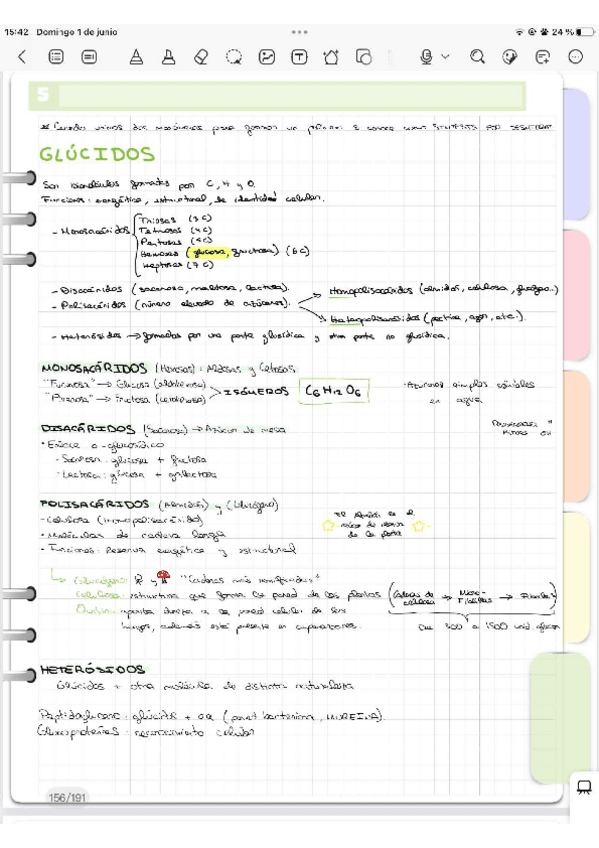 15:42 Domingo 1 de junio
24 %
5
GLÚCIDOS
Son moléculas formadas por C, H y O.
Funciones: energética, estructural, de identidad celular.
- Monosacáridos
Triosas (3 C)
Tetrosas (4 C)
Pentosas (5 C)
Hexosas (glucosa, fructosa) (6 C)
Heptosas (7 C)
- Disacáridos (sacarosa, maltosa, lactosa).
- Polisacáridos (número elevado de azúcares).
Homopolisacáridos (almidón, celulosa,
Heteropolisacáridos (pectina, agar, etc.).
- Heterósidos → formados por una parte glucídica y otra parte no glucídica.
MONOSACÁRIDOS (Hexosas): Aldosas y Cetosas
"Furanosa" → Glucosa (aldohexosa)
"Piranosa" → Fructosa (cetohexosa)
ISÓMEROS
C6 H12 O6
· Azúcares simples solubles
en agua.
DISACÁRIDOS (Sacarosa) → Azúcar de mesa
· Enlace o-glucosídico
- Sacarosa: glucosa + fructosa
- Lactosa: glucosa + galactosa
POLISACÁRIDOS (Almidón) y (Glucógeno)
- Celulosa (Homopolisacárido)
· Moléculas de cadena larga
- Funciones: Reserva energética y estructural
El almidón es el
de reserva
de la planta
Glucógeno: y "Cadenas más ramificadas"
Celulosa: estructura que forma la pared de las plantas
Cadenas de
celulosa → Micro-
fibrillas → Fibrillas
Quitina: aporta dureza a la pared celular de los
hongos, además está presente en
300 a 1500 unid. glucosa
HETERÓSIDOS
Glúcidos + otra molécula de distinta naturaleza
Peptidoglucano: glúcido + aa (pared bacteriana, MUREINA).
Glucoproteínas: reconocimiento celular
156/191